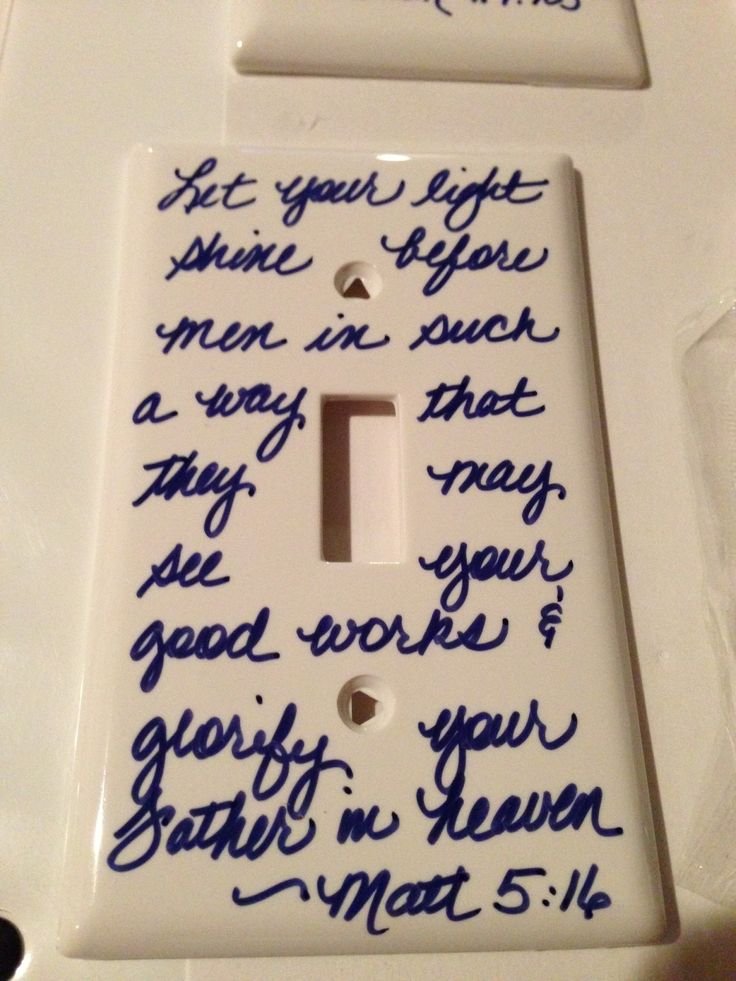 Let your light
shine before
men in such
a way that
they may
see your
good works &
glorify your
Father in heaven
~Matt 5:16